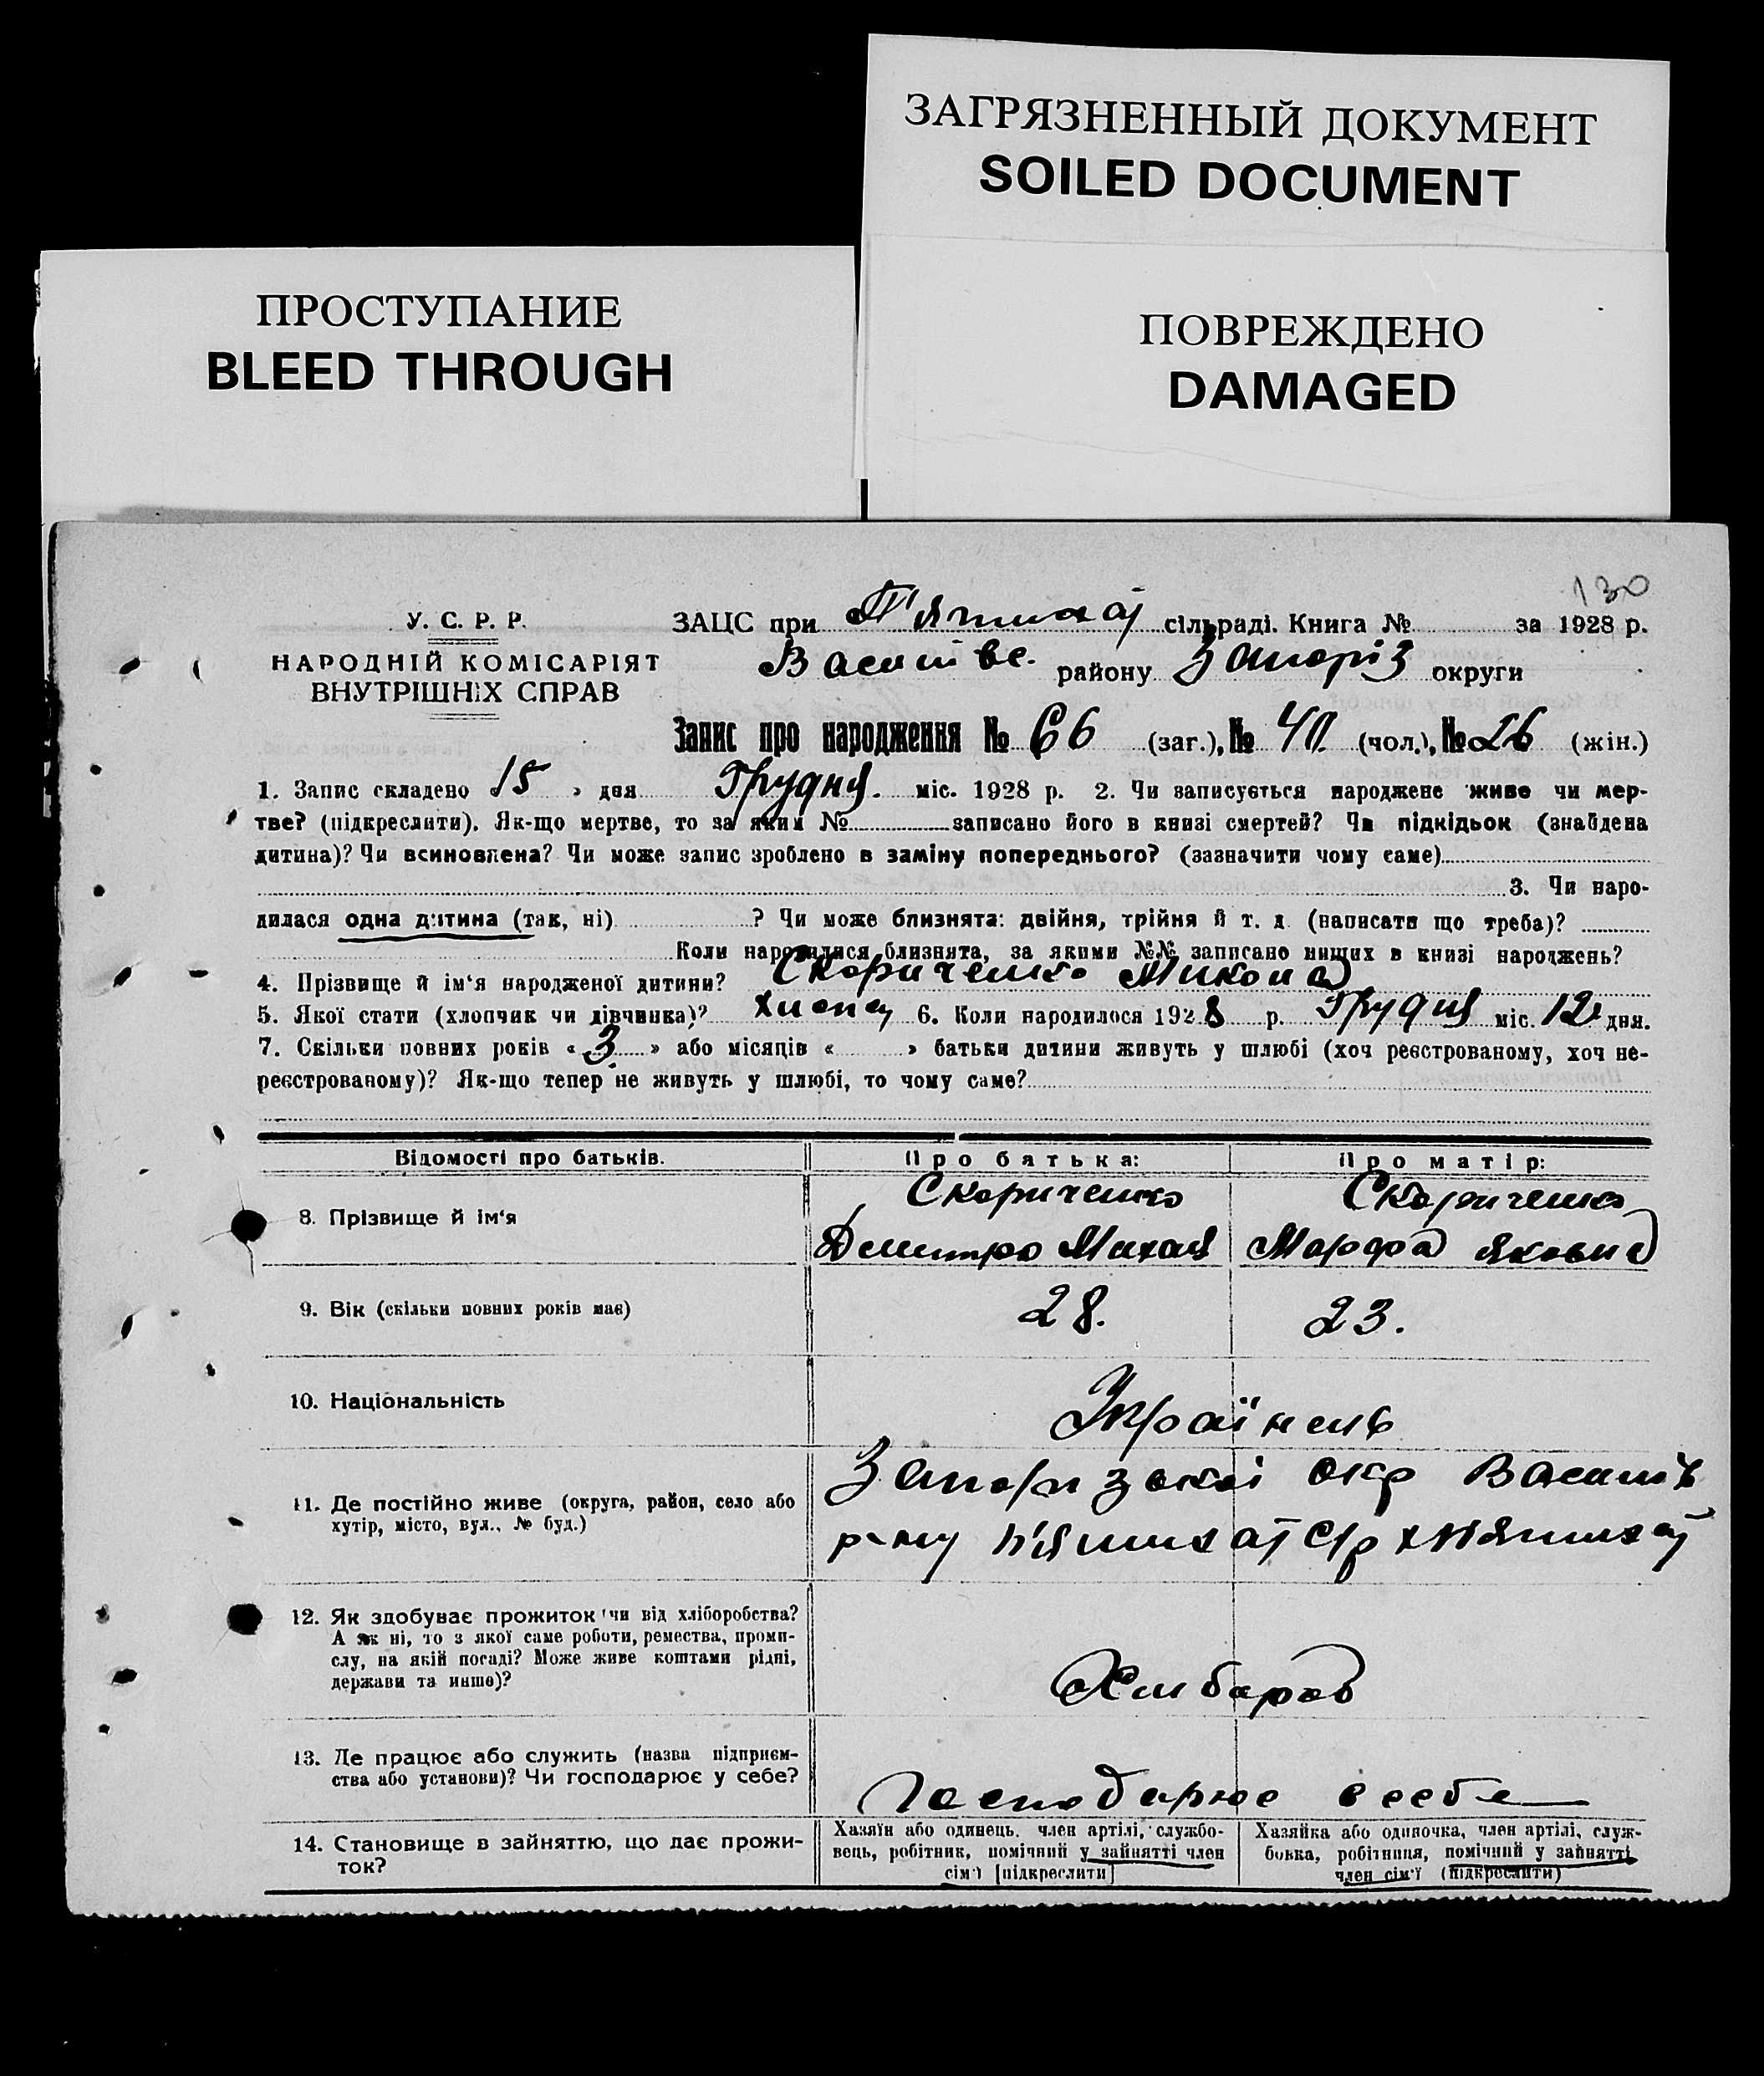 ЗАГРЯЗНЕННЫЙ ДОКУМЕНТ
SOILED DOCUMENT
ПРОСТУПАНИЕ
BLEED THROUGH
ПОВРЕЖДЕНО
DAMAGED
130
У. С. Р. Р.
НАРОДНІЙ КОМІСАРІЯТ
ВНУТРІШНІХ СПРАВ
ЗАЦС при П'ятихат сільраді. Книга № за 1928 р.
Василівс. району Запоріз округи
Запис про народження № 66 (заг.), № 40 (чол.), № 26 (жін.)
1. Запис складено 15 » дня Грудня. міс. 1928 р. 2. Чи записується народжене живе чи мер-
тве? (підкреслити). Як-що мертве, то за яким № записано його в книзі смертей? Чи підкідьок (знайдена
дитина)? Чи всиновлена? Чи може запис зроблено в заміну попереднього? (зазначити чому саме)
3. Чи наро-
дилася одна дитина (так, ні) ? Чи може близнята: двійня, трійня й т. д. (написати що треба)?
Коли народилися близнята, за якими №№ записано инших в книзі народжень?
4. Прізвище й ім'я народженої дитини? Скориченко Микола
5. Якої стати (хлопчик чи дівчинка)? хлопец 6. Коли народилося 1928 р. Грудня міс. 12 дня.
7. Скільки повних років « 3 » або місяців « » батьки дитини живуть у шлюбі (хоч реєстрованому, хоч не-
реєстрованому)? Як-що тепер не живуть у шлюбі, то чому саме?
Відомості про батьків. Про батька: Про матір:
8. Прізвище й ім'я Скориченко Скориченко
Дмитро Михай Марфа Яковна
9. Вік (скільки повних років має) 28. 23.
10. Національність Українець
11. Де постійно живе (округа, район, село або
хутір, місто, вул., № буд.)
Запоризокої окр Василів
р-ну п'ятихат с/р х п'ятихат
12. Як здобуває прожиток чи від хліборобства?
А як ні, то з якої саме роботи, ремества, проми-
слу, на якій посаді? Може живе коштами рідні,
держави та инше)?
Хлибороб
13. Де працює або служить (назва підприєм-
ства або установи)? Чи господарює у себе?
Господарює в себе
14. Становище в зайняттю, що дає прожи-
ток?
Хазяїн або одинець, член артілі, службо-
вець, робітник, помічний у зайнятті член
сім'ї [підкреслити]
Хазяйка або одиночка, член артілі, служ-
бовка, робітниця, помічний у зайнятті
член сім'ї (підкреслити)